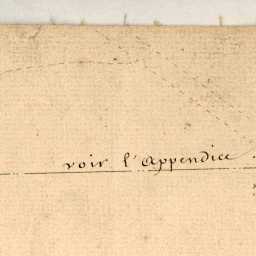 voir l'appendice.